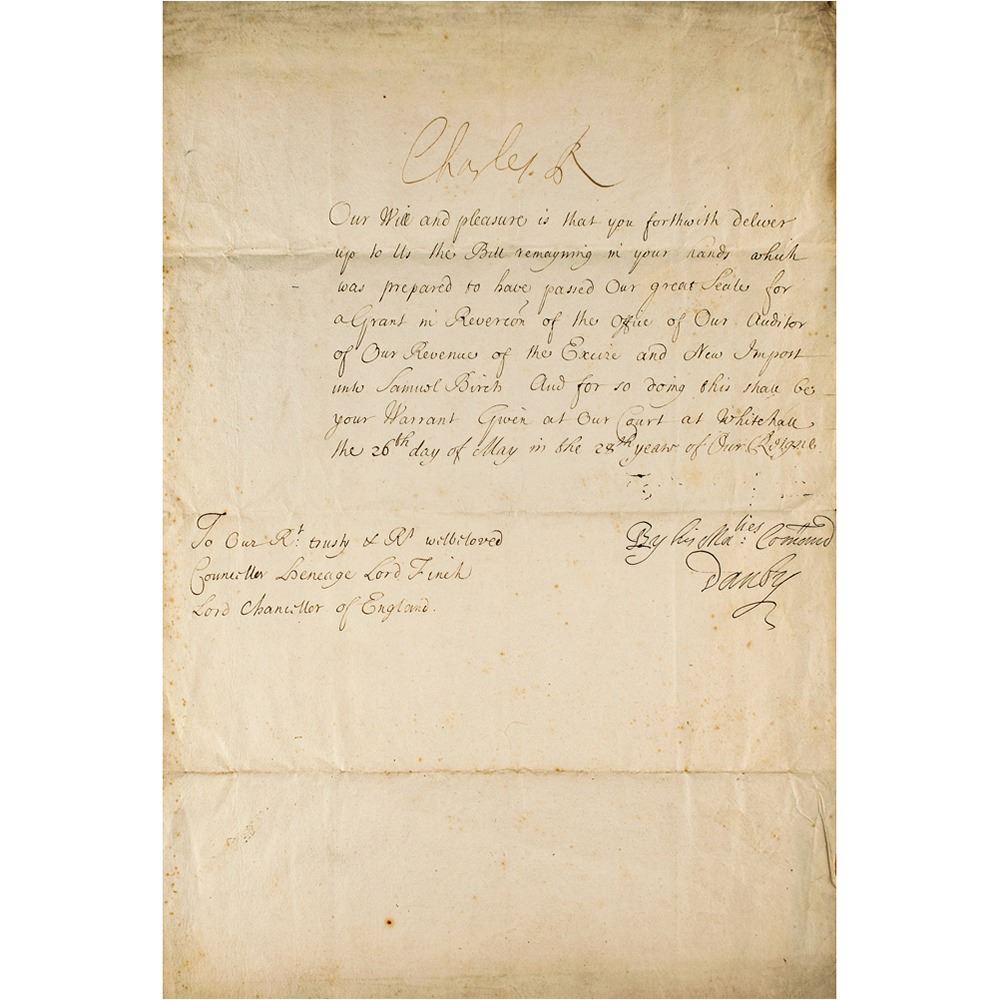 Charles R
Our Will and pleasure is that you forthwith deliver
up to Us the Bill remayning in your hands which
was prepared to have passed Our great Seale for
a Grant in Revercon of the Office of Our Auditor
of Our Revenue of the Excize and New Impost
unto Samuel Birch And for so doing this shall be
your Warrant Given at Our Court at Whitehall
the 26th day of May in the 28th yeare of Our Reigne.
By his Ma:ties Comand
Danby
To Our Rt: trusty & Rt welbeloved
Councellor Heneage Lord Finch
Lord Chancellor of England.